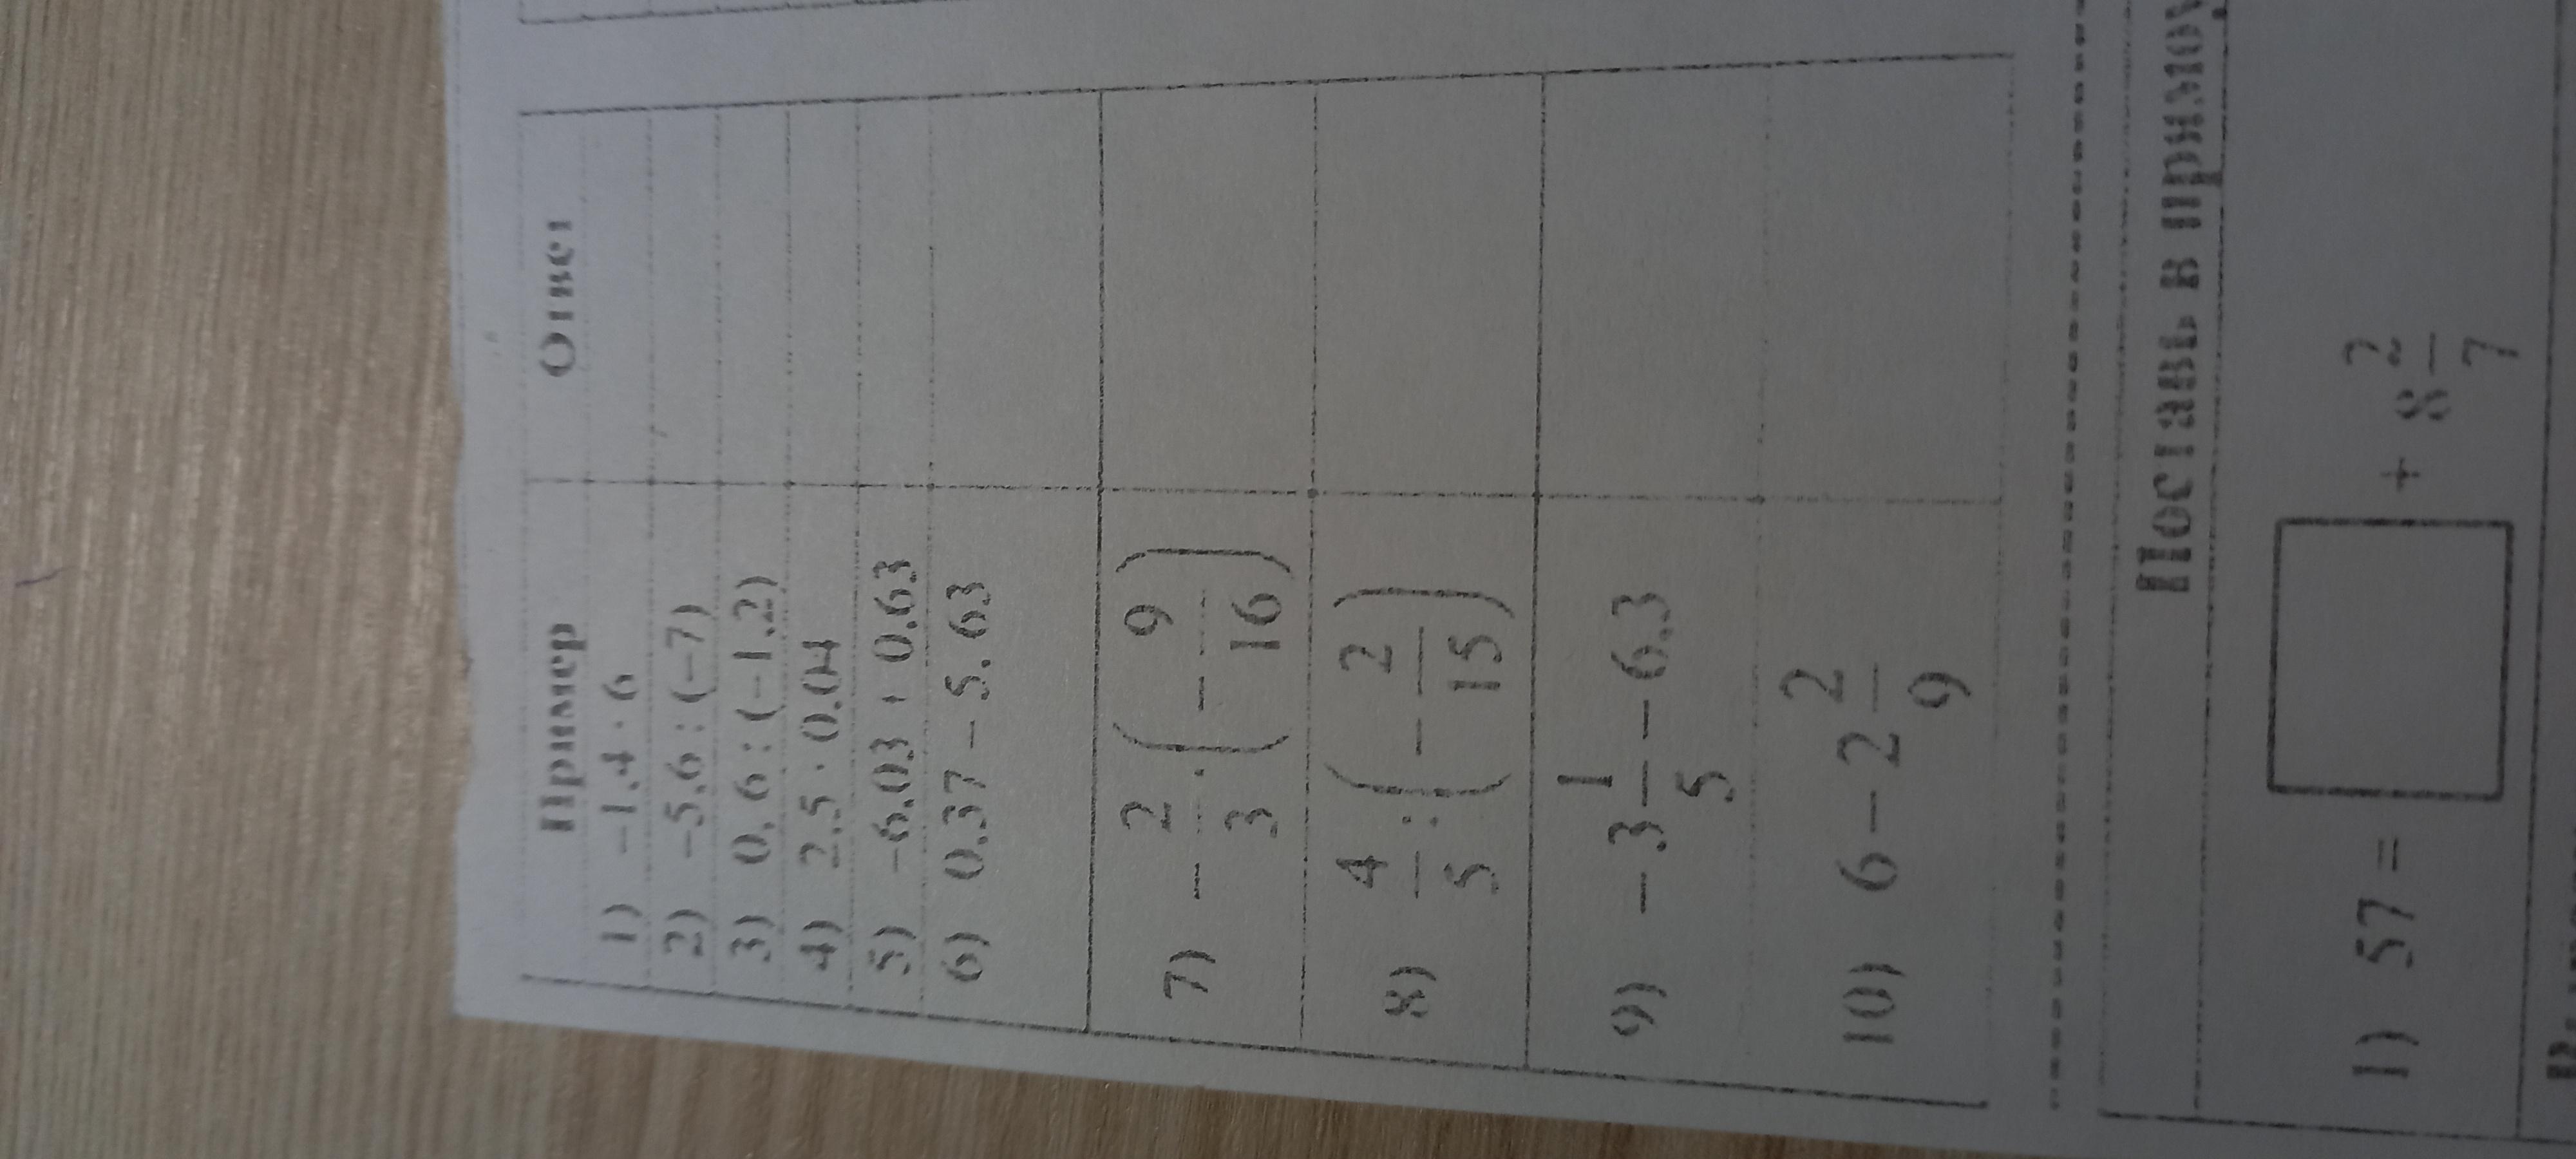 Пример Ответ
1) −1,4 · 6
2) −5,6 : (−7)
3) 0,6 : (−1,2)
4) 2,5 · 0,04
5) −6,03 + 0,63
6) 0,37 − 5,63
7) −2/3 · (−9/16)
8) 4/5 : (−2/15)
9) −3 1/5 − 6,3
10) 6 − 2 2/9
Поставь в прямоу
1) 57 = + 8 2/7